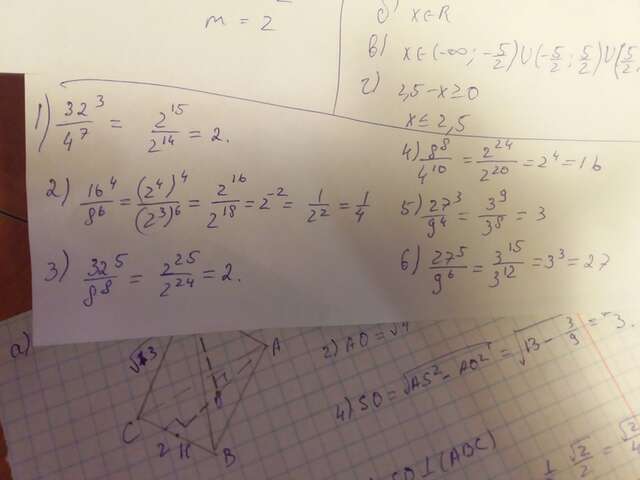 m = 2
б) x∈R
в) x∈(-∞; -5/2)∪(-5/2; 5/2)∪(5/2
г) 2,5-x≥0
x≤2,5
1) 32^3/4^7 = 2^15/2^14 = 2.
2) 16^4/8^6 = (2^4)^4/(2^3)^6 = 2^16/2^18 = 2^-2 = 1/2^2 = 1/4
3) 32^5/8^8 = 2^25/2^24 = 2.
4) 8^8/4^10 = 2^24/2^20 = 2^4 = 16
5) 27^3/9^4 = 3^9/3^8 = 3
6) 27^5/9^6 = 3^15/3^12 = 3^3 = 27
а)
√13
A
C
2
H
B
2) AO = √4
4) SO = √AS^2 - AO^2 = √13 -
SO⊥(ABC)
√2/2 = √2/4